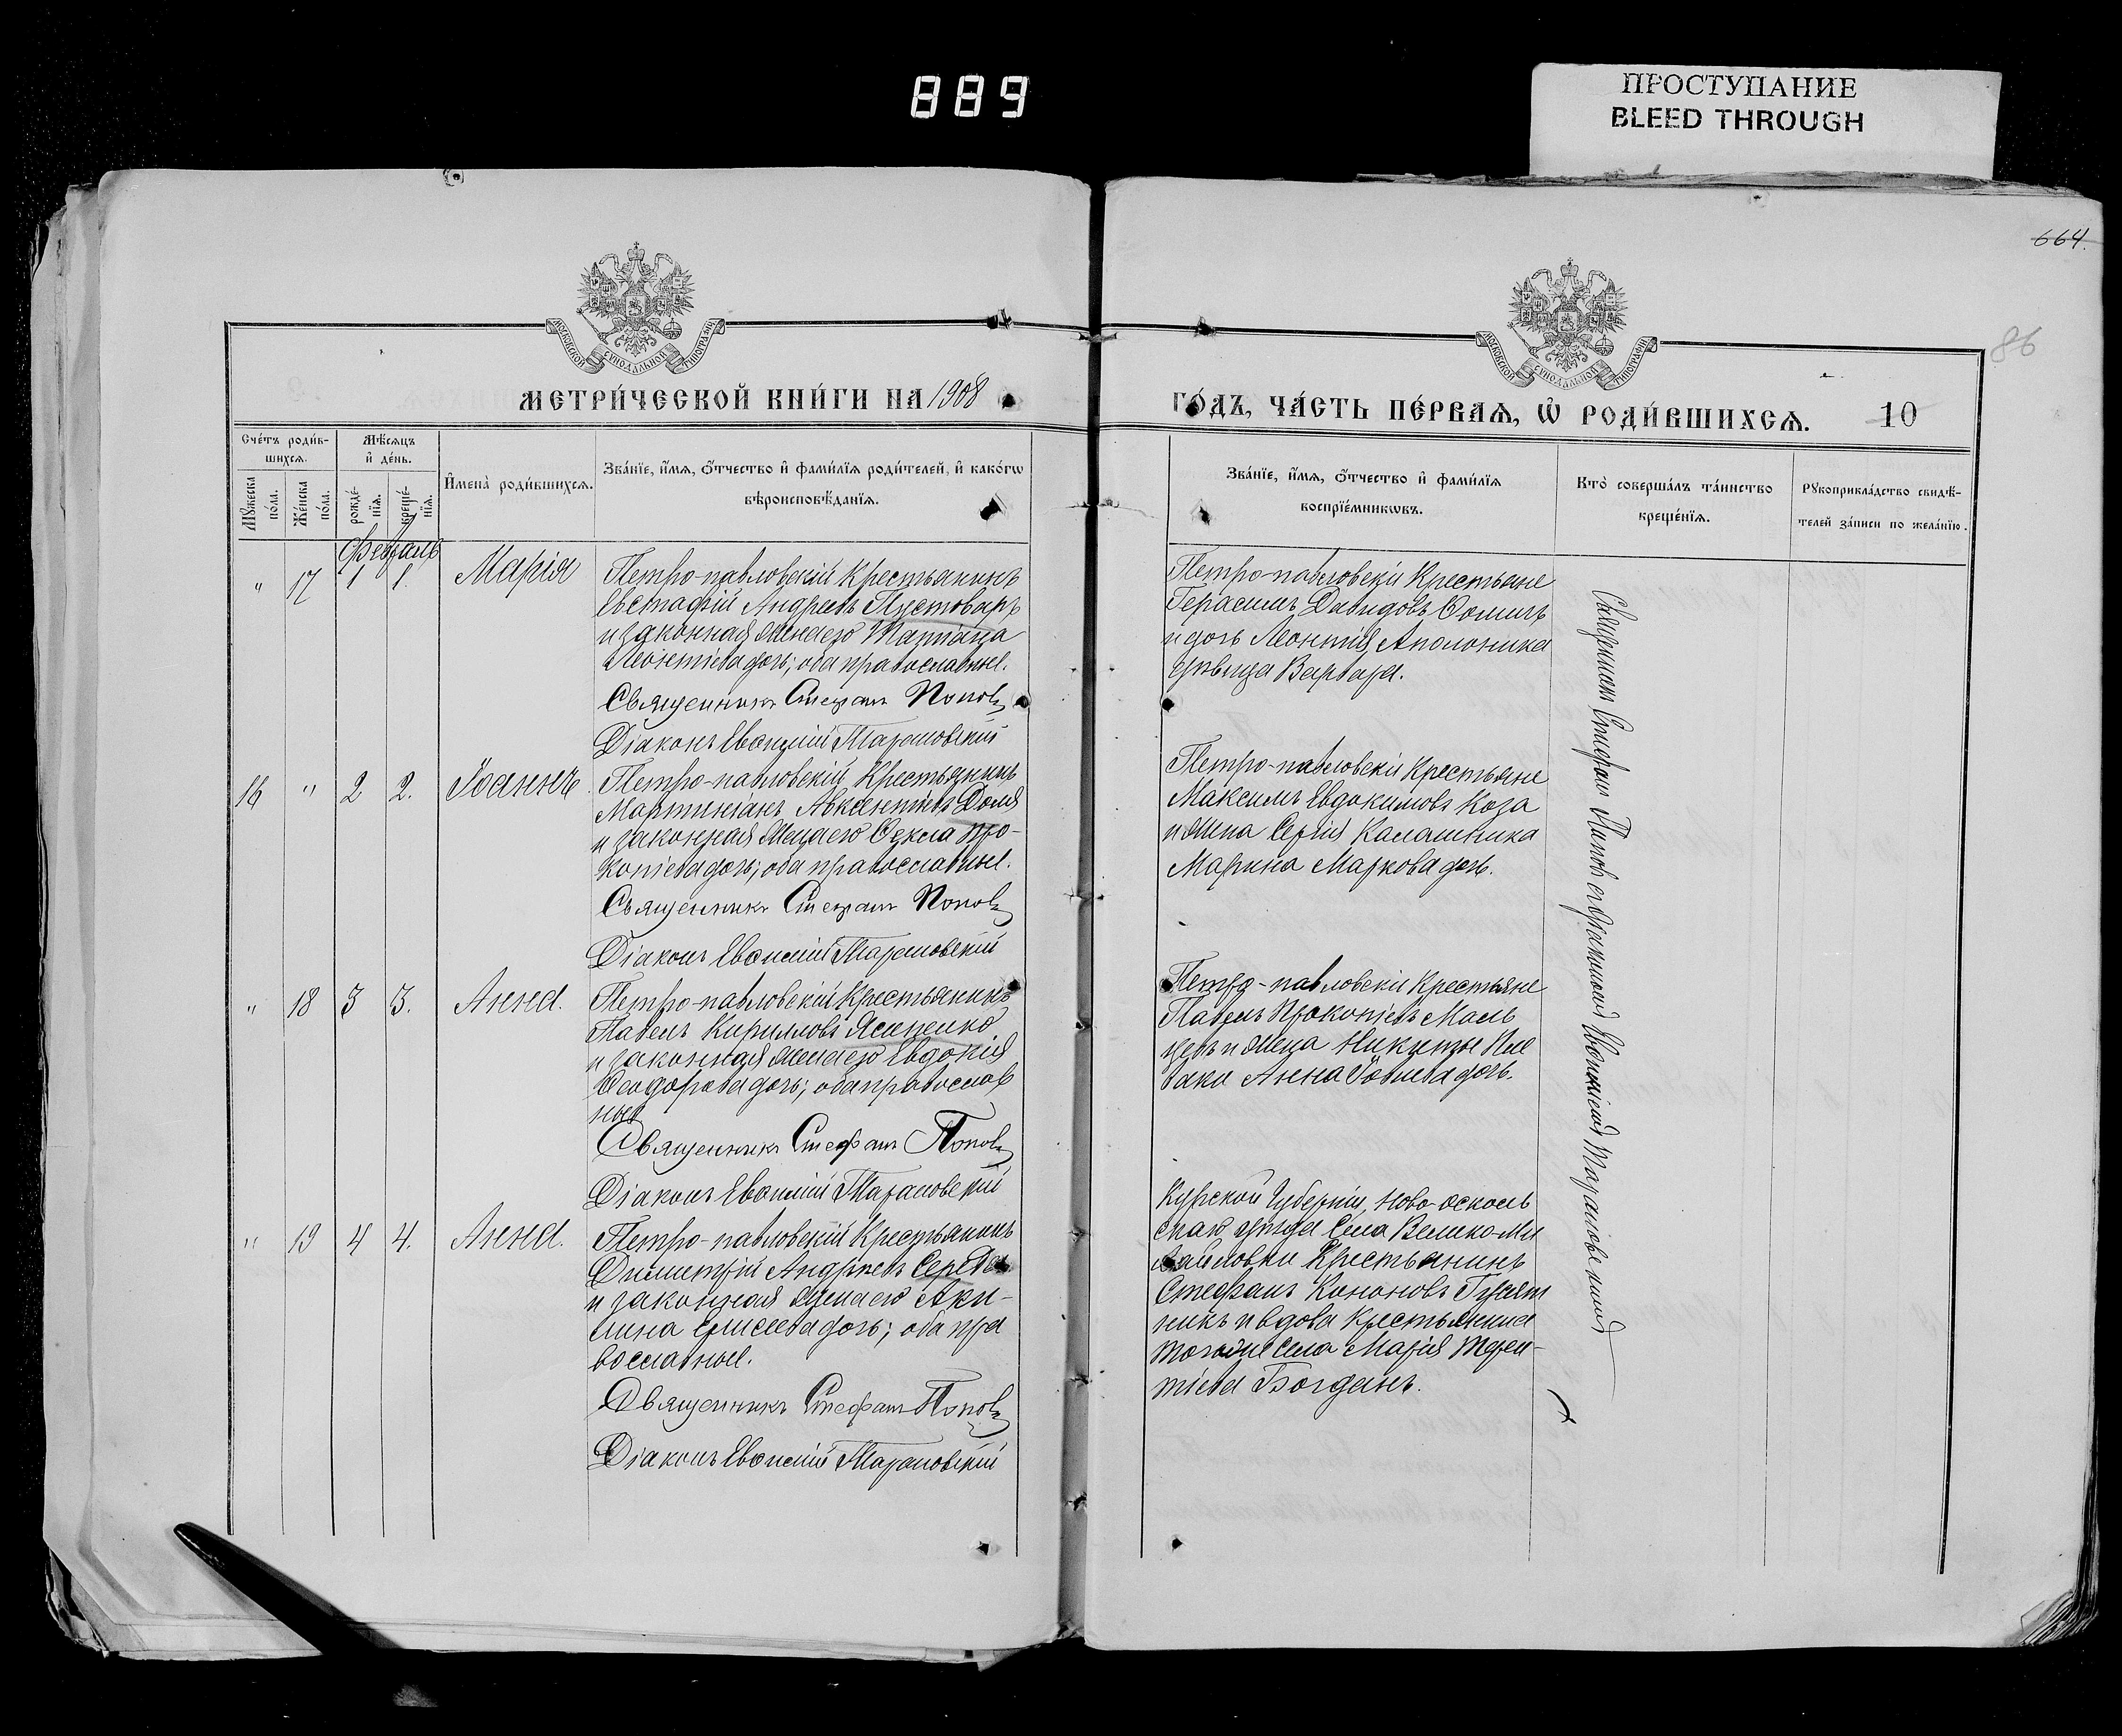 889
ПРОСТУПАНИЕ
BLEED THROUGH
664.
86
МОСКОВСКОЙ СѴНОДАЛЬНОЙ ТИПОГРАФІИ
МОСКОВСКОЙ СѴНОДАЛЬНОЙ ТИПОГРАФІИ
МЕТРИ́ЧЕСКОЙ КНИ́ГИ НА 1908
ГО́ДЪ, ЧА́СТЬ ПЕ́РВАѦ, Ѡ҆ РОДИ́ВШИХСѦ.
10
Сче́тъ роди́в-
шихсѧ.
Мꙋ́жеска
по́ла.
Же́нска
по́ла.
Мѣ́сѧцъ
и҆ де́нь.
рожде́-
нїѧ.
креще́-
нїѧ.
И҆мена̀ роди́вшихсѧ.
Зва́нїе, и҆́мѧ, ѻ҆́тчество и҆ фами́лїѧ роди́телей, и҆ како́гѡ
вѣроисповѣ́данїѧ.
Зва́нїе, и҆́мѧ, ѻ҆́тчество и҆ фами́лїѧ
воспрїе́мникѡвъ.
Кто̀ соверша́лъ та́инство
креще́нїѧ.
Рꙋкоприкла́дство свидѣ́-
телей за́писи по жела́нїю.
Февраль
" 17 1 1. Марія
Петро-павловскій Крестьянинъ
Евстафій Андреевъ Пустоваръ
и законная жена его Татіана
Леонтіева дочь; оба православные.
Священникъ Стефанъ Поповъ
Діаконъ Евѳимій Тарановскій
Петро-павловскіи Крестьяне
Герасимъ Давидовъ Сомикъ
и дочь Леонтія Аполоника
дѣвица Варвара.
16 " 2 2. Іоаннъ
Петро-павловскій Крестьянинъ
Мартиніанъ Авксентіевъ Доля
и законная жена его Ѳекла Про-
копіева дочь; оба православные.
Священникъ Стефанъ Поповъ
Діаконъ Евѳимій Тарановскій
Петро-павловскіи Крестьяне
Максимъ Евдокимовъ Коза
и жена Сергія Калашника
Марина Маркова дочь.
" 18 3 3. Анна.
Петро-павловскій Крестьянинъ
Павелъ Кирилловъ Ясипенко
и законная жена его Евдокія
Ѳеодорова дочь; оба православ
ные
Священникъ Стефанъ Поповъ
Діаконъ Евѳимій Тарановскій
Петро-павловскіи Крестьяне
Павелъ Прокопіевъ Маль
цевъ и жена Никиты
Анна Іовлева дочь.
" 19 4 4. Анна.
Петро-павловскій Крестьянинъ
Димитрій Андреевъ Середа
и законная жена его Аки-
лина Елисеева дочь; оба пра
вославные.
Священникъ Стефанъ Поповъ
Діаконъ Евѳимій Тарановскій
Курской Губерніи, Ново-Осколь
скаго уѣзда Села Велико-Ми
хайловки Крестьянинъ
Стефанъ Кононовъ Гусят
никъ и вдова Крестьянина
того же села Марія Терен-
тіева Богданъ.
Священникъ Стефанъ Поповъ съ діакономъ Евѳиміемъ Тарановскимъ